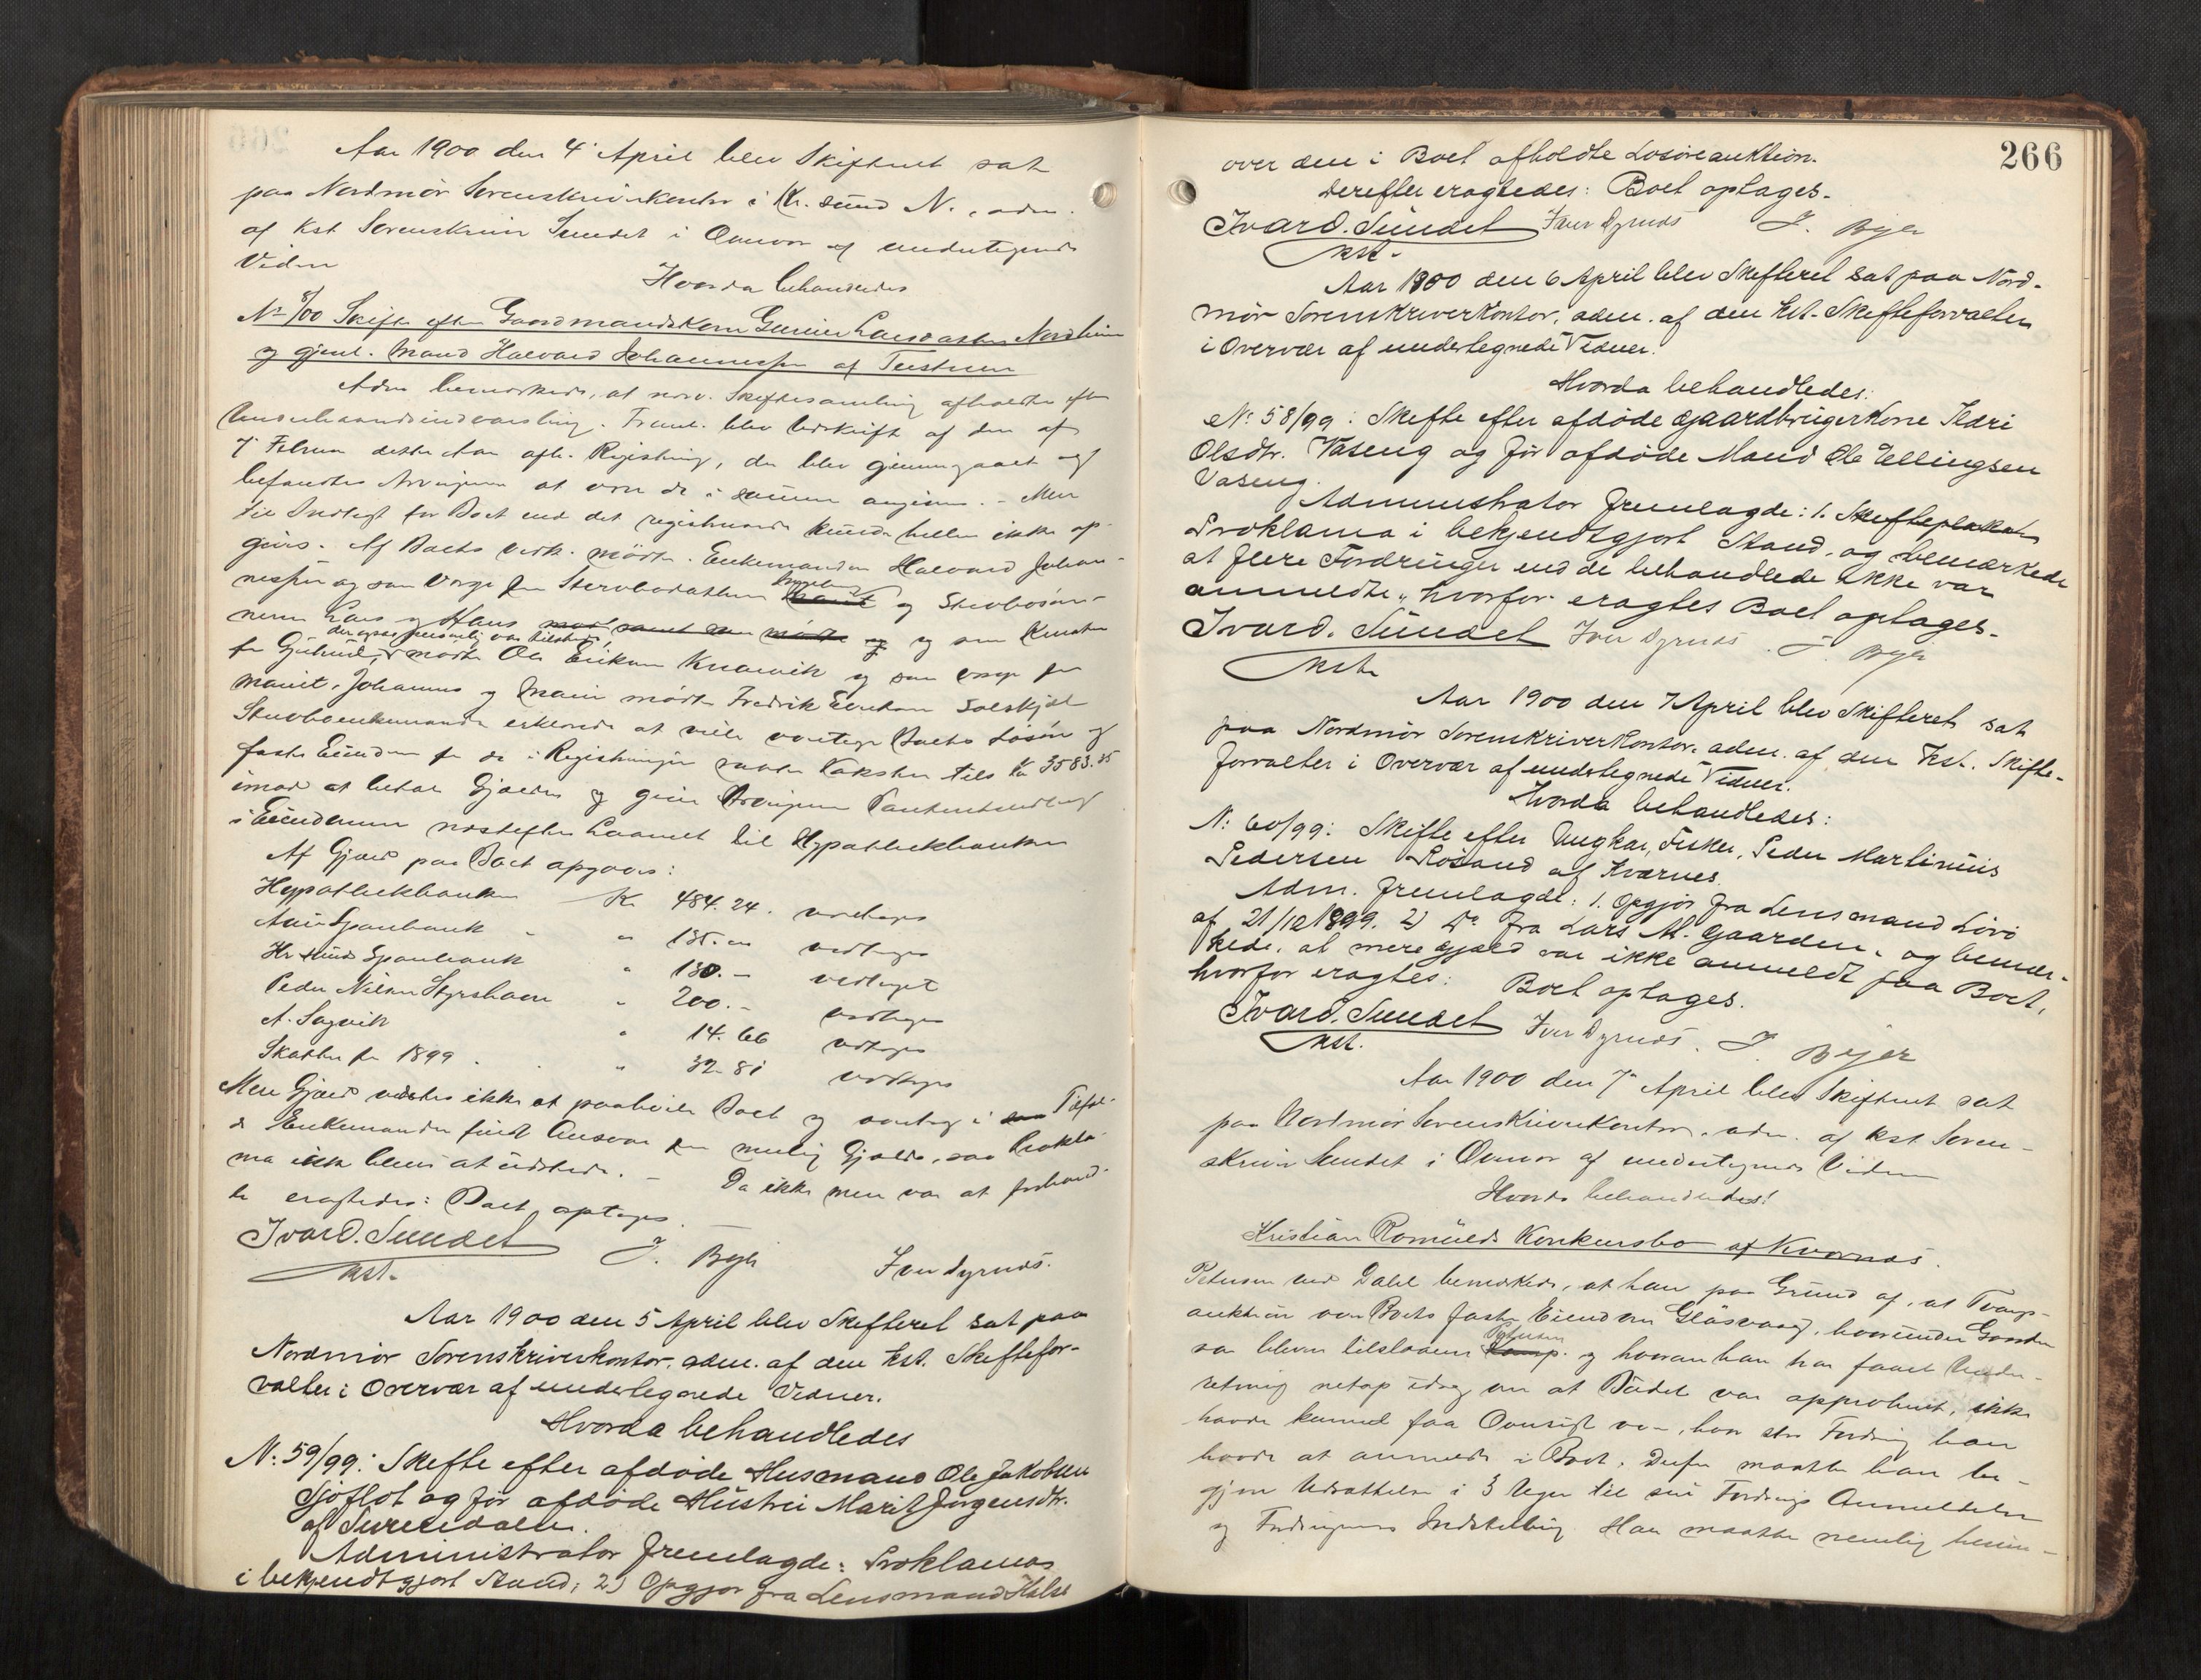 Aar 1900 den 4' April blev Skifteret sat
paa Nordmør Sorenskriverkontor i Kr. sund N., adm.
af Kst Sorenskriver Sundet i Overvær af undertegnede
Vidner
Hvorda behandledes
No 8/00 Skifte efter Gaardmandskone Larsdatter Nordheim
og gjenl. Mand Halvard Johannessen af Tustern
Adm bemærkede, at nærv. Skiftesamling afholdtes efter
Underhaandsindvarsling. Freml. blev Udskrift af den af
7' Februar dette Aar afh. Registrering, der blev gjennemgaaet og
befandtes Arvingerne at være de i samme angivne. - Mere
til Indtægt for Boet end det registrerede kunde heller ikke op-
gives. Af Boets Vedk. mødte Enkemanden Halvard Johan-
nessen og som Værge for Stervbodatteren og Stervbosøn-
nerne Lars og Hans og som Kurator
der ogsaa personlig var tilstede,
for Gjertrud, mødte Ole Eriksen Knarvik og som Værge for
Marit, Johannes og Marie mødte Fredrik Solskjel
Stervboenkemanden erklærede at ville overtage Boets Løsøre og
faste Eiendom for de i Registreringen satte Takster tils Kr 3583.35
imod at betale Gjælden og give Arvingerne Panteutlæg
i Eiendommen næstefter Laanet til Hypothekbanken
Af Gjæld paa Boet opgaves:
Hypothekbanken Kr 484. 24. vedtages
Aure Sparebank " " 135. - vedtages
Kr sunds Sparebank " 130. - vedtaget
Peder Nilsen Styrshavn " 200. - vedtages
A. Sagvik " 14. 66 vedtages
Skatter for 1899 . . " 32. 81 vedtages
Mere Gjæld vidstes ikke at paahvile Boet og overtog i Tilfæl-
de Enkemanden fuldt Ansvar for mulig Gjæld, saa Prokla-
ma ikke blev at udstede. - Da ikke mere var at forhand-
le eragtedes: Boet optages. -
Ivar O. Sundet J. Byer Iver Dyrnæs.
Kst.
Aar 1900 den 5 April blev Skifteret sat paa
Nordmør Sorenskriverkontor, adm. af den kst. Skiftefor-
valter i Overvær af undertegnede Vidner.
Hvorda behandledes
No. 59/99: Skifte efter afdøde Husmand Ole Jakobsen
Sjøflot og før afdøde Hustru Marit Jørgensdtr.
af Surendalen.
Administrator fremlagde: Proklamas
i bekjendtgjort Stand; 2) Opgjør fra Lensmand Halse
266
over den i Boet afholdte Løsøreauktion.
Derefter eragtedes: Boet optages.
Ivar O. Sundet Iver Dyrnæs J. Byer
Kst.
Aar 1900 den 6 April blev Skifteret sat paa Nord-
mør Sorenskriverkontor, adm. af den kst. Skifteforvalter
i Overvær af undertegnede Vidner.
Hvorda behandledes:
No. 58/99: Skifte efter afdøde Gaardbrugerkone Sidri
Olsdtr. Vaseng og før afdøde Mand Ole Ellingsen
Vaseng.
Administrator fremlagde: 1. Skifteplakat
Proklama i bekjendtgjort Stand, og bemærkede
at flere Fordringer end de behandlede ikke var
anmeldte, hvorfor eragtes Boet optages.
Ivar O. Sundet Iver Dyrnæs. J. Byer
Kst.
Aar 1900 den 7 April blev Skifteret sat
paa Nordmør Sorenskriverkontor, adm. af den kst. Skifte-
forvalter i Overvær af undertegnede Vidner.
Hvorda behandledes:
No. 60/99: Skifte efter Ungkar, Fisker, Peder Martinius
Pedersen Røsand af Kværnes.
Adm. fremlagde: 1. Opgjør fra Lensmand Løvø
af 21/12 1899. 2) Do fra Lars M. Gaarden, og bemær-
kede, at mere Gjæld var ikke anmeldt paa Boet,
hvorfor eragtes: Boet optages.
Ivar O. Sundet Iver Dyrnæs. J. Byer
Kst.
Aar 1900 den 7' April blev Skifteret sat
paa Nordmør Sorenskriverkontor, adm. af kst. Soren-
skriver Sundet i Overvær af undertegnede Vidner
Hvorda behandledes:
Kristian Romulds Konkursbo af Kvernæs.
Petersen ved Dahl bemærkede, at han paa Grund af, at Tvangs-
auktion over Boets faste Eiendom Glasvaag, hvorunder Gaarden
Petersen
var bleven tilslaaen og hvoran han har faaet Under-
retning netop idag om at Budet var approberet, ikke
havde kunnet faa Oversigt over, hvor stor Fordring han
havde at anmelde i Boet. Derfor maatte han be-
gjære Udsættelse i 3 Uger til sin Fordrings Anmeldelse
og Fordringens Indstilling. Han maatte nemlig